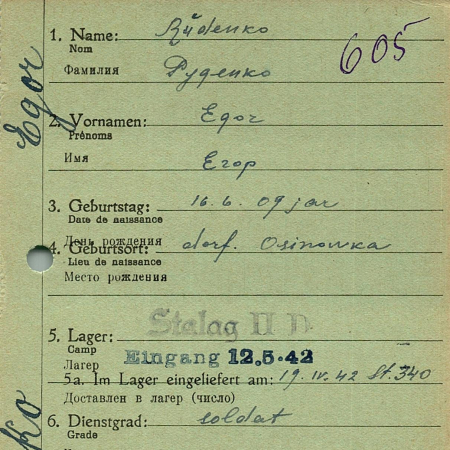 605
1. Name: Rŭdenko
Nom
Фамилия Руденко
2. Vornamen: Egor
Prénoms
Имя Егор
3. Geburtstag: 16. 6. 09 jar
Date de naissance
День рождения
4. Geburtsort: dorf. Osinowka
Lieu de naissance
Место рождения
5. Lager: Stalag II D
Camp Eingang 12.5.42
Лагерь
5a. Im Lager eingeliefert am: 19. IV. 42 St. 340
Доставлен в лагерь (число)
6. Dienstgrad: soldat
Grade
Egor
ko